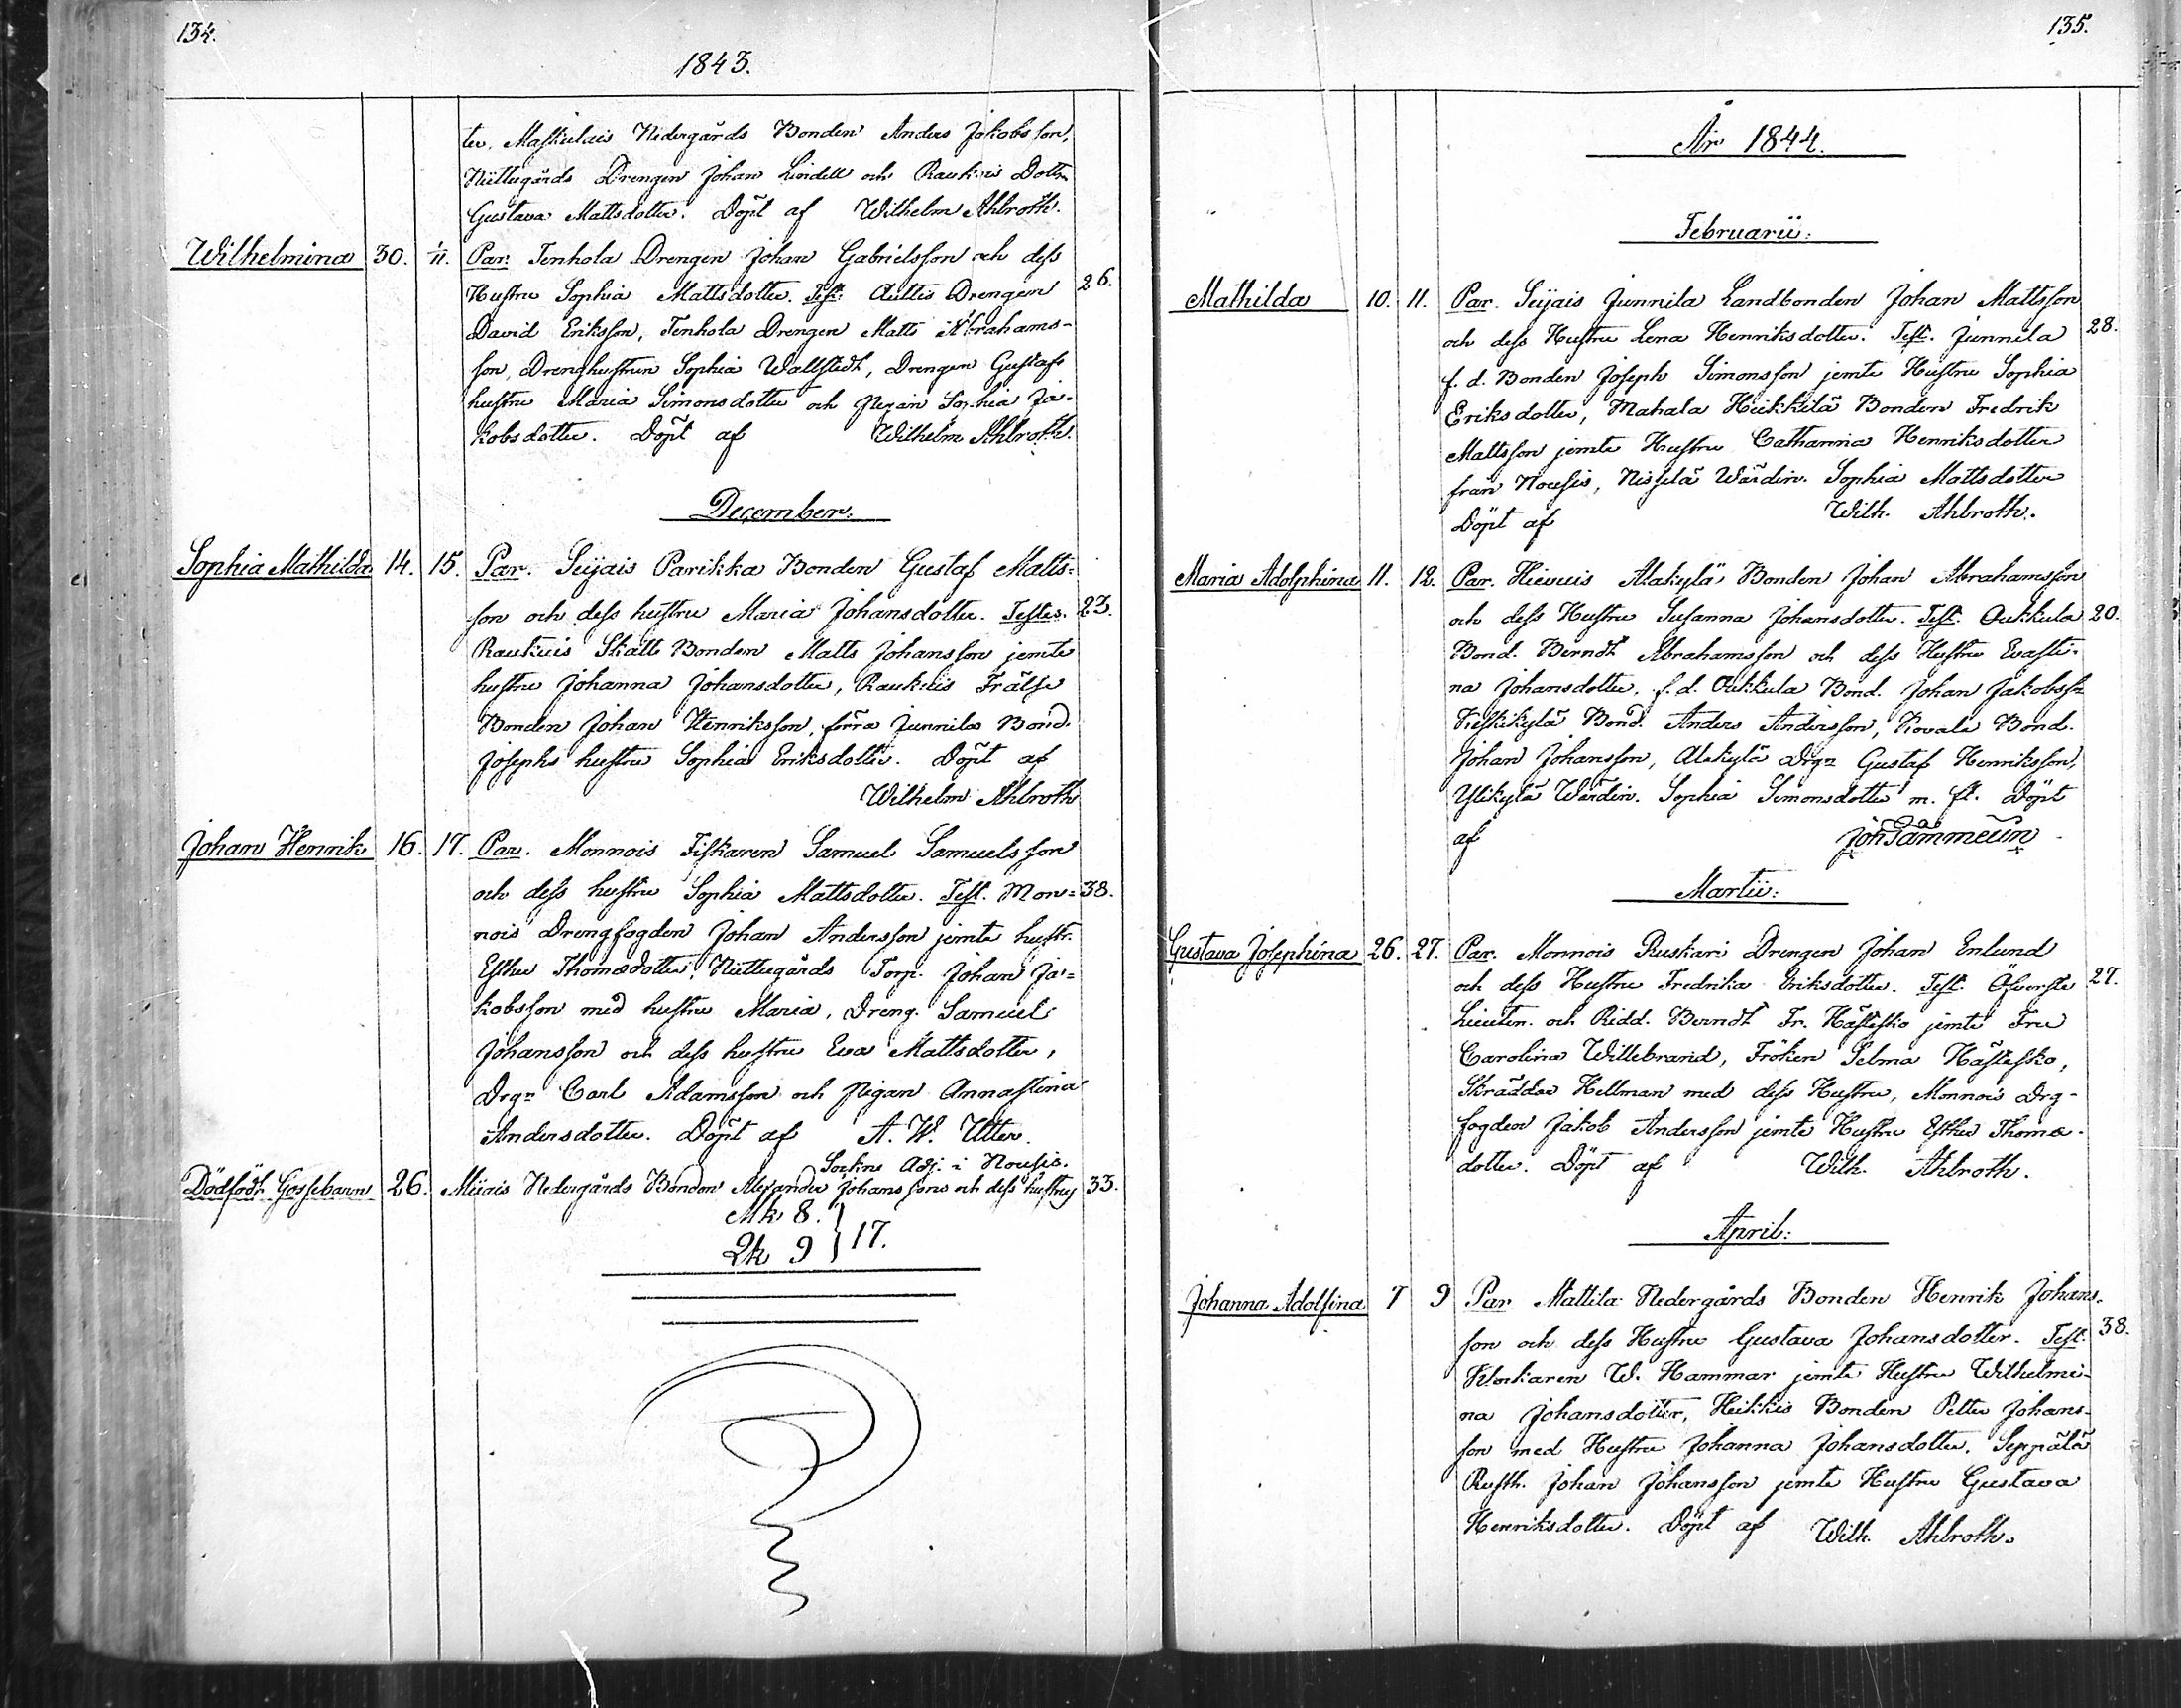 134.
1843.
ter, Maskulais Nedergårds Bonden Anders Jakobsson,
Nüttugårds Drengen Johan Lindell och Raukuis Dottr.
Gustava Mattsdotter. Döpt af Wilhelm Ahlroth.
Wilhelmina 30. 1/11. Par. Tenhola Drengen Johan Gabrielsson och dess 26.
Hustru Sophia Mattsdotter. Test: Aultis Drengen
David Eriksson, Tenhola Drengen Matts Abrahams-
son, Drenghustrun Sophia Wallstedt, Drengen Gustafs
hustru Maria Simonsdotter och Pigan Sophia Ja-
kobsdotter. Döpt af Wilhelm Ahlroth.
December:
Sophia Mathilda 14. 15. Par. Sujais Parikka Bonden Gustaf Matts=
son och dess hustru Maria Johansdotter. Testes. 23.
Raukuis Skatte Bonden Matts Johansson jemte
hustru Johanna Johansdotter, Raukuis Frälse
Bonden Johan Henriksson, förra Junnila Bond.
Josephs hustru Sophia Eriksdotter. Döpt af
Wilhelm Ahlroth
Johan Henrik 16. 17. Par. Monnois Fiskaren Samuel Samuelsson
och dess hustru Sophia Mattsdotter. Test. Mon= 38.
nois Drengfogden Johan Andersson jemte hustr.
Esther Thomædotter, Nüttugårds Torp. Johan Ja=
kobsson med hustru Maria, Dreng. Samuel
Johansson och dess hustru Eva Mattsdotter,
Drgn Carl Adamsson och Pigan Annastina
Andersdotter. Döpt af A. W. Utter.
Sockne Adj. i Nousis.
Dödfödt Gossebarn 26. Mijais Nedergårds Bonden Alexander Johanssons och dess hustrus 33.
Mk 8.
Qk 9 } 17.
135.
År 1844.
Februarii:
Mathilda 10. 11. Par. Sujais Junnila Landbonden Johan Mattsson
och dess Hustru Lena Henriksdotter. Test. Junnila 28.
f. d. Bonden Joseph Simonsson jemte Hustru Sophia
Eriksdotter, Mahala Heikkilä Bonden Fredrik
Mattsson jemte Hustru Catharina Henriksdotter
från Nousis, Nissilä Wärdin. Sophia Mattsdotter
Döpt af Wilh. Ahlroth.
Maria Adolphina 11. 12. Par. Hievuis Alakylä Bonden Johan Abrahamsson
och dess Hustru Susanna Johansdotter. Test. Oukkula 20.
Bond. Berndt Abrahamsson och dess Hustru Evasti-
na Johansdotter. f. d. Oukkula Bond. Johan Jakobss.
Keskikylä Bond. Anders Andersson, Kovala Bond.
Johan Johansson, Alakylä Drgn Gustaf Henriksson,
Ylikylä Wärdin. Sophia Simonsdotter m. fl. Döpt
af Joh Tammelin
Martii:
Gustava Josephina 26. 27. Par. Monnois Ruskari Drengen Johan Enlund
och dess Hustru Fredrika Eriksdotter. Test. Öfverste 27.
Lieuten. och Ridd. Berndt Fr. Hästesko jemte Fru
Carolina Willebrand, Fröken Selma Hästesko,
Skräddar Hellman med dess Hustru, Monnois Drg-
fogden Jakob Andersson jemte Hustru Esther Thomæ-
dotter. Döpt af Wilh. Ahlroth.
April:
Johanna Adolfina 7 9 Par Mattila Nedergårds Bonden Henrik Johans-
son och dess Hustru Gustava Johansdotter. Test. 38.
Klockaren W. Hammar jemte Hustru Wilhelmi-
na Johansdotter, Heikkis Bonden Petter Johans-
son med Hustru Johanna Johansdotter. Seppälä
Rusth. Johan Johansson jemte Hustru Gustava
Henriksdotter. Döpt af Wilh. Ahlroth.